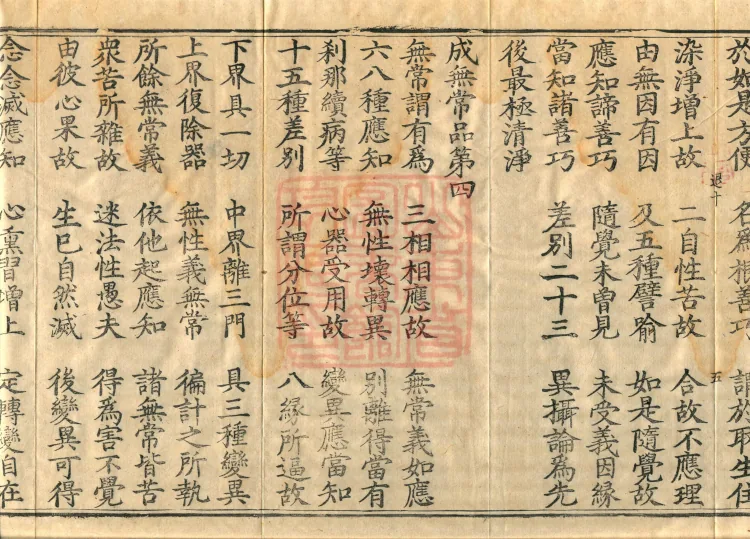 於如是方便 名爲攝善巧 謂於取生住
染淨增上故 二自性苦故 合故不應理
由無因有因 及五種譬喻 如是隨覺故
應知諦善巧 隨覺未曾見 未受義因緣
當知諸善巧 差別二十三 異攝論爲先
後最極清淨
成無常品第四
無常謂有爲 三相相應故 無常義如應
六八種應知 無性壞轉異 別離得當有
刹那續病等 心器受用故 變異應當知
十五種差別 所謂分位等 八緣所逼故
下界具一切 中界離三門 具三種變異
上界復除器 無性義無常 徧計之所執
所餘無常義 依他起應知 諸無常皆苦
衆苦所雜故 迷法性愚夫 得爲害不覺
由彼心果故 生已自然滅 後變異可得
念念滅應知 心熏習增上 定轉變自在